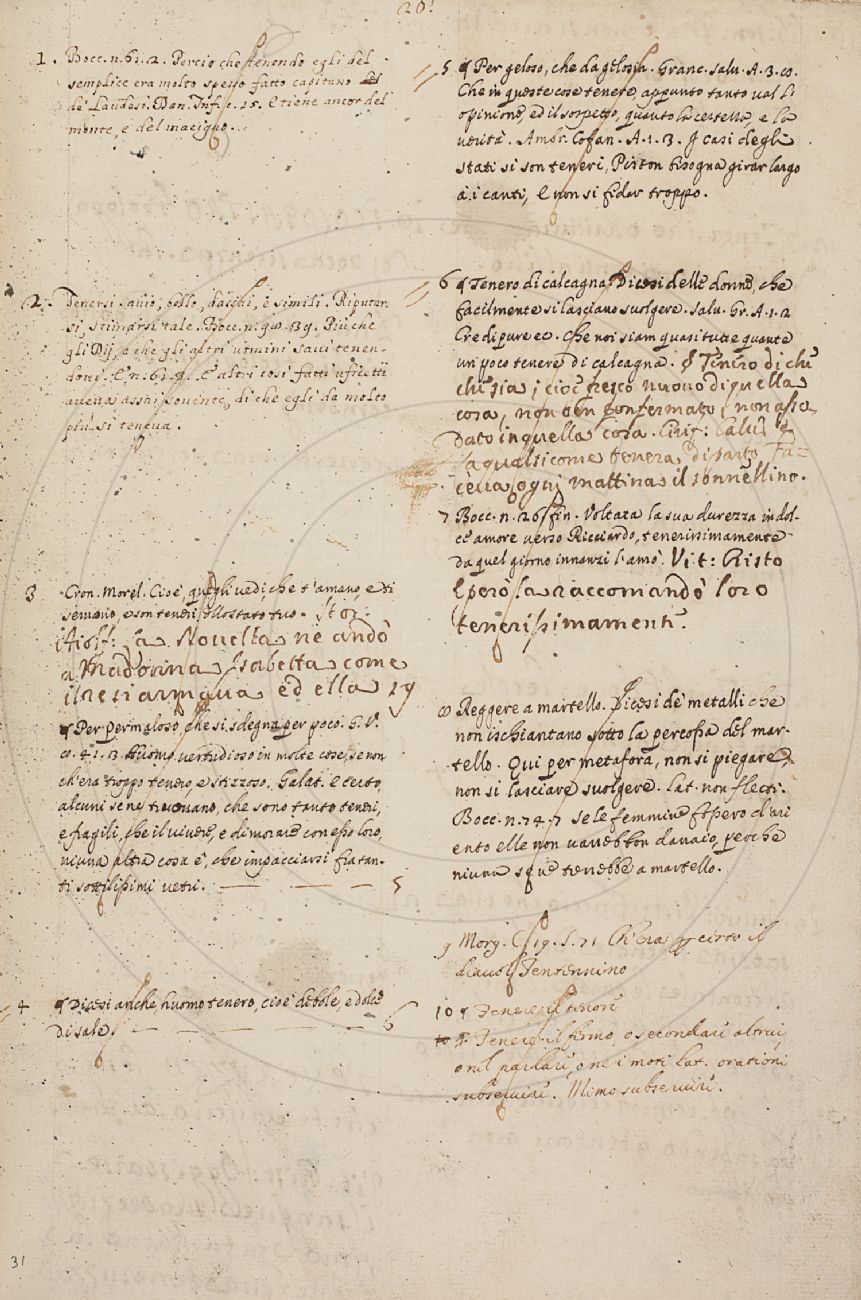 201
1. Bocc. n. 61. 2. Percio che tenendo egli del
semplice era molto spesso fatto capitano
de' Laudesi. Dan. Inf. c. 15. E tiene ancor del
monte, e del macigno.
2. Tenersi savio, bello, da chi, e simili. Riputar
si, stimarsi tale. Bocc. n. 39. Più che
gli Dij, e che gli altri uomini savi tenen-
dosi. E n. 61. E altri così fatti uficetti
aveva assai sovente, di che egli da molto
più si teneva.
3 Cron. Morel. Cioè, quegli vedi, che t'amano, e ti
servono, e son teneri dello stato tuo. Stor:
Aiolf: la Novella ne andò
a Madonna Isabetta come
ed ella 19
¶ Per permaloso, che si sdegna per poco. G. V.
co. 4. 1. 3. Huomo vertudioso in molte cose, se non
ch'era troppo tenero, e stizzoso. Galat. E certo,
alcuni se ne truovano, che sono tanto teneri,
e fragili, che il vivere, e dimorare con esso loro,
niuna altra cosa è, che impacciarsi fra tan-
ti sottilissimi vetri. — — — 5
4 ¶ Dicesi anche, huomo tenero, cioè debole, e dolce
di sale. — — — 6
5 ¶ Per geloso, che dà gelosia. Granc. Salv. A. 3. co.
Che in queste cose tenere, appunto tanto val l'
opinione, ed il sospetto, quanto la certezza, e la
verità. Ambr. Cofan. A. 1. 3. I casi degli
stati si son teneri, Pirton bisogna girar largo
a i canti, E non si fidar troppo.
6 ¶ Tenero di calcagna, Dicesi delle donne, che
facilmente si lasciano svolgere. Salv. Gr. A. 1. 2
Credi pure ec. che noi siam quasi tutte quante
un poco tenere di calcagna. § Tenero di chi
chi sia, cioè fresco nuovo di quella
cosa, non ben confermato,
dato in quella cosa. Calv: 4
la qual si come tenera di parto Fa=
ceva ogni mattina il sonnellino.
7 Bocc. n. 26. fin. Voltata la sua durezza in dol-
ce amore verso Ricciardo, tenerissimamente
da quel giorno innanzi l'amò. Vit: Cristo
E però la raccomandò loro
tenerissimamente.
8 Reggere a martello. Dicesi de' metalli che
non ischiantano sotto la percossa del mar-
tello. Qui per metafora, non si piegare,
non si lasciare svolgere. Lat. non flecti.
Bocc. n. 74. 7 se le femmine fossero d'ari
ento elle non varrebbon danaio, perché
niuna se ne terrebbe a martello.
9 Morg. C. 19. S. 71 Ch'era certo il
diavol Tentennino
10 ¶ Tenere il tenore
¶ Tenere il fermo, o secondare altrui,
o nel parlare, o ne i moti Lat. orationi
subservire. Mimo subservire.
31